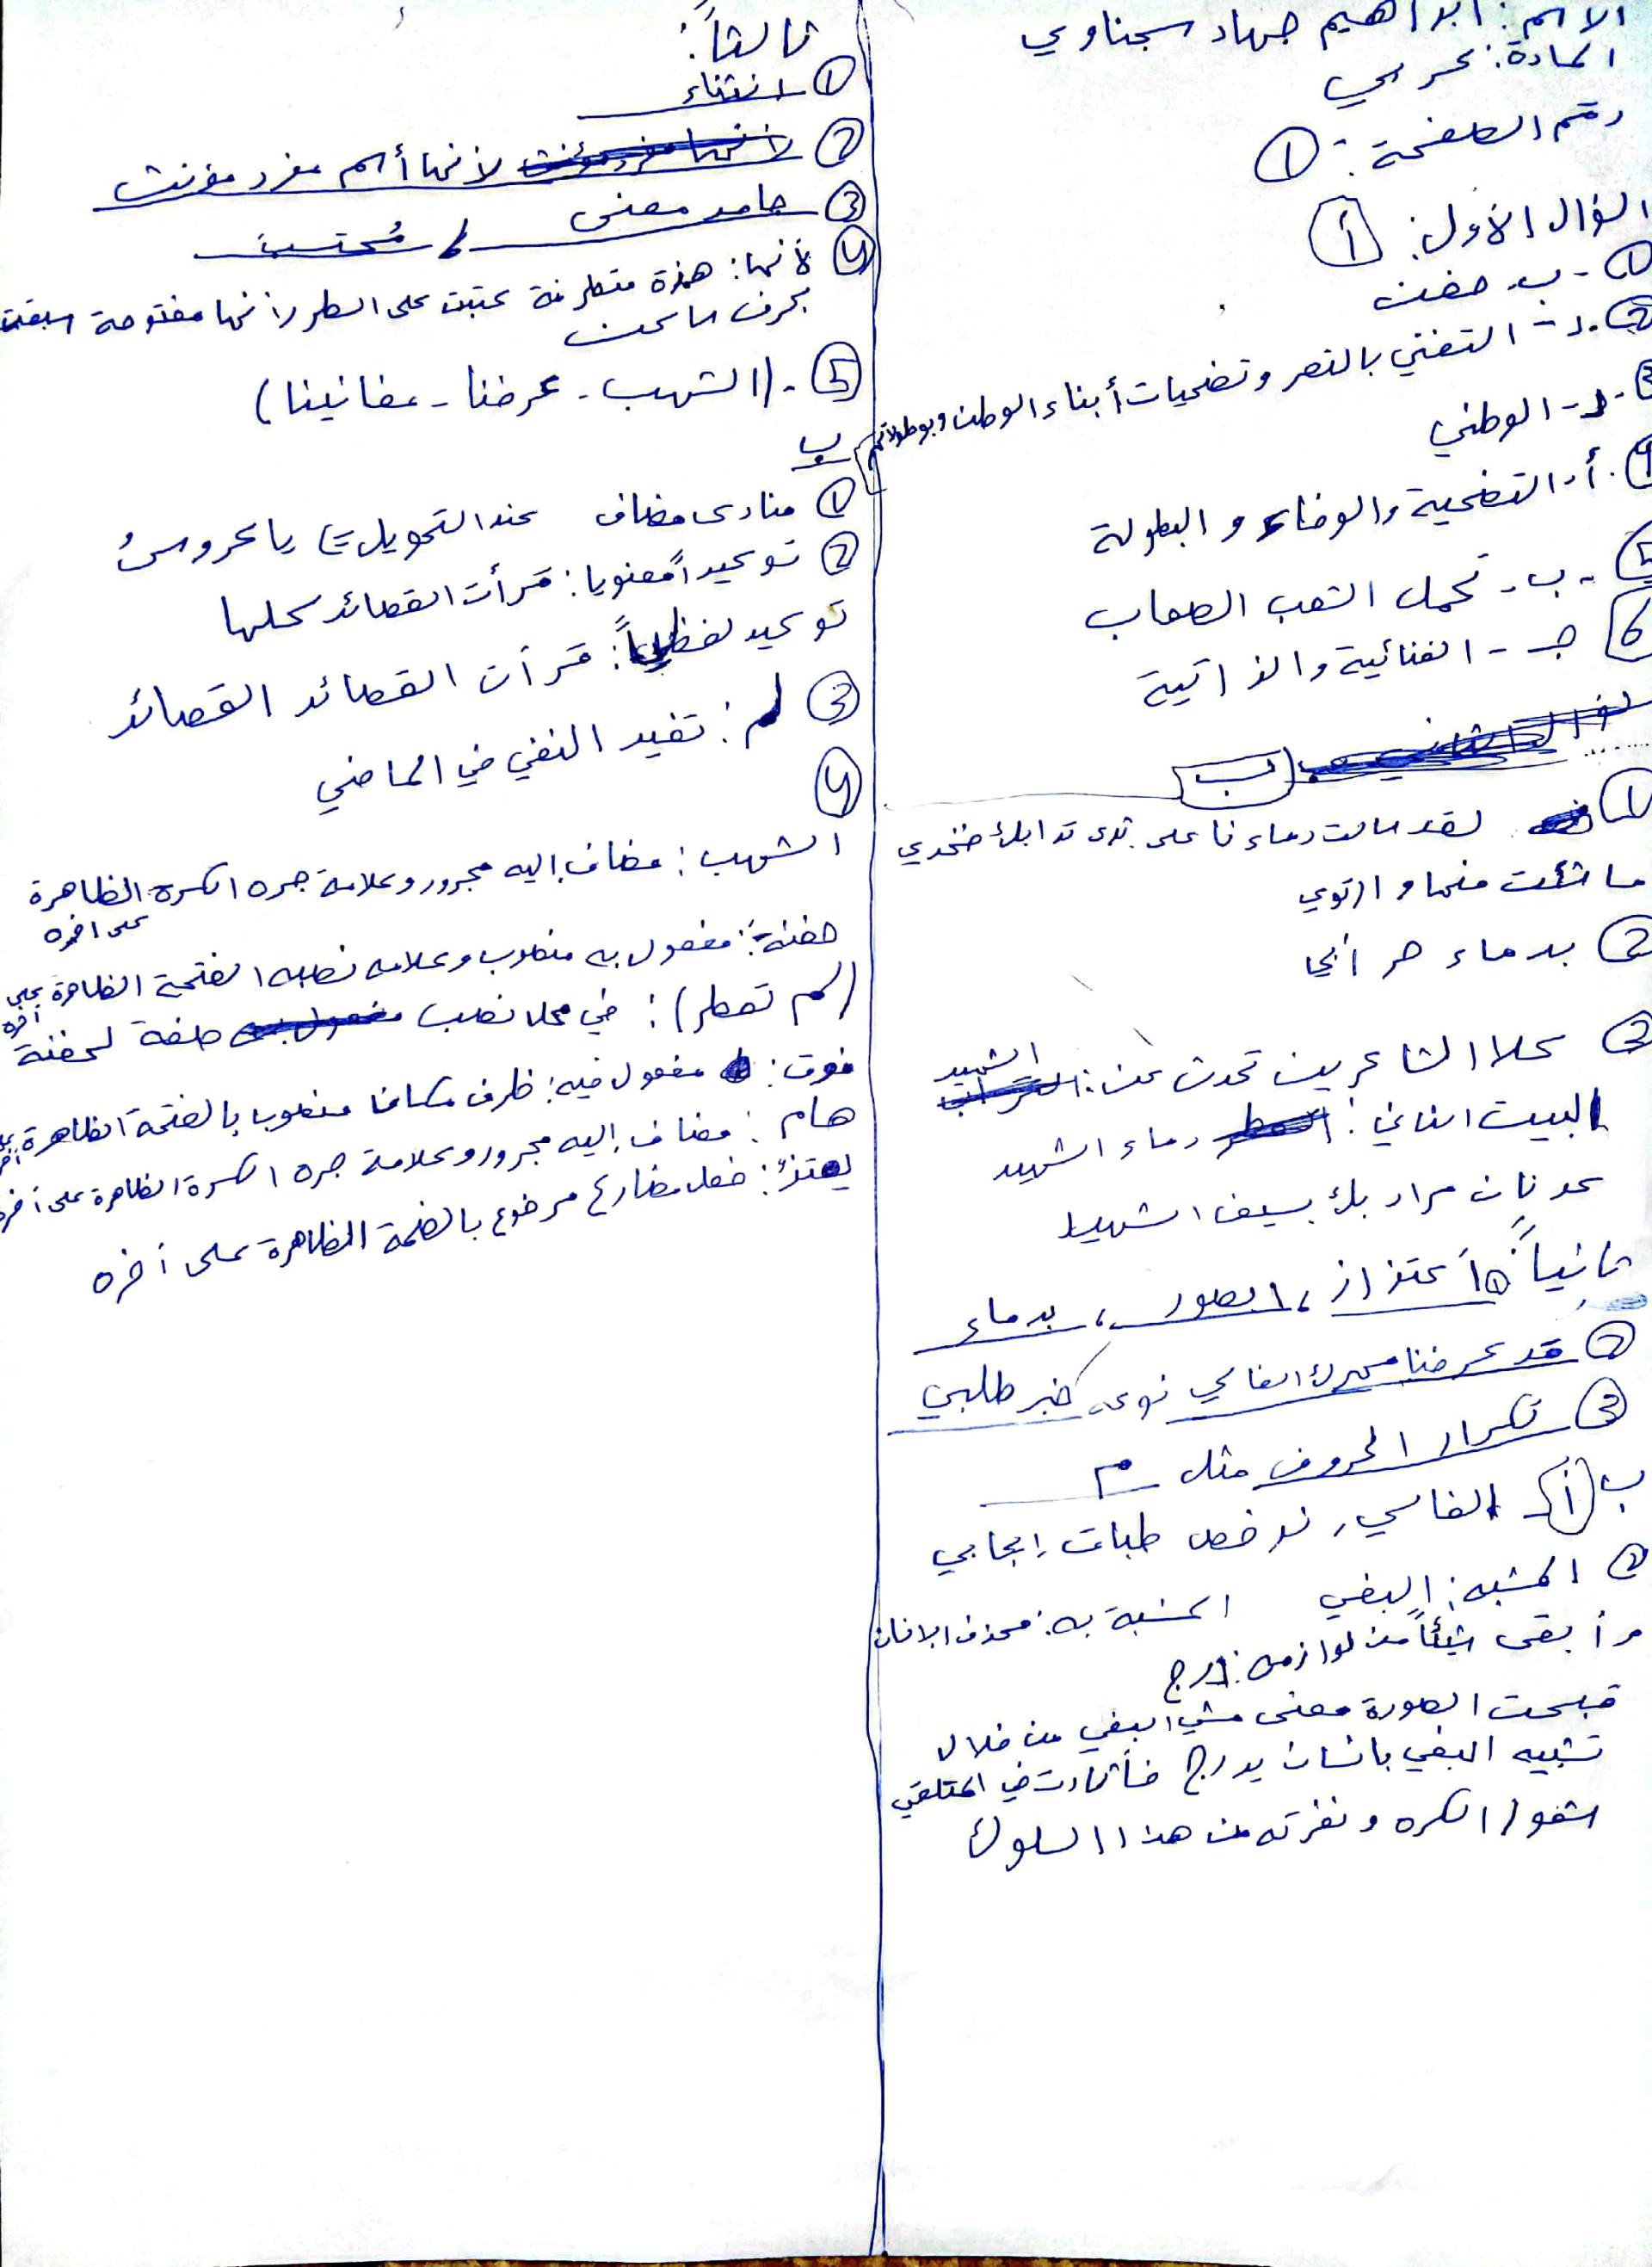 الاسم: ابراهيم جهاد سجناوي
المادة: عربي
رقم الصفحة: ①
السؤال الأول: أ
① - ب - حفنت
② . د - التغني بالنصر وتضحيات أبناء الوطن وبطولاتهم
③ . د - الوطني
④ . أ. التضحية والوفاء و البطولة
⑤ - ب - تحمل الشعب الصعاب
6 جـ - الغنائية والذاتية
ب
① لقد سالت دماءنا على ثدى ترابك فخذي
ما شئت منها و ارتوي
② بدماء حر أبيا
③ كلا الشاعرين تحدث عن: الشهيد
البيت الثاني: دماء الشهيد
عدنان مراد بك بسيف الشهيد
ثانياً: ① اعتزاز، الصور، بدماء
② قد عرضنا معرك الغالي نوعه خبر طلبي
③ تكرار الحروف مثل م
ب أ الغالي، نرخص طباق إيجابي
② المشبه: البغي المشبة به: محذوف الانسان
و أبقى شيئاً من لوازمه: درج
قبحت الصورة معنى مشي البغي من خلال
تشبيه البغي بانسان يدرج فأثارت في المتلقي
شعور الكره و نفرته من هذا السلوك
ثالثاً:
① انتثناء
② لأنها أسم مفرد مؤنث
③ جامد معنى / مُحتسب
④ لأنها: همزة متطرفة كتبت على السطر لأنها مفتوحة سبقت
بحرف ساكن
⑤ - (الشهب - عرضنا - مغانينا)
ب
① منادى مضاف عند التحويل ⇐ يا عروسُ
② توكيداً معنويا: قرأت القصائد كلها
توكيد لفظياً: قرأت القصائد القصائد
③ لم: تفيد النفي في الماضي
④
الشهب: مضاف إليه مجرور وعلامة جره الكسرة الظاهرة
على اخره
حفنة: مفعول به منصوب وعلامه نصبه الفتحة الظاهرة على
أخره
(لم تعطر): في محل نصب صفة لحفنة
فوق: مفعول فيه: ظرف مكان منصوب بالفتحة الظاهرة
هام: مضاف إليه مجرور وعلامة جره الكسرة الظاهرة على أخره
يعتزُّ: فعل مضارع مرفوع بالضمة الظاهرة على أخره